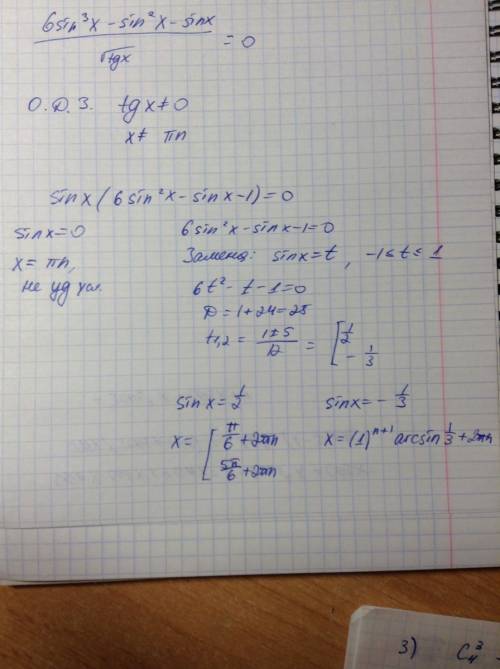 6sin³x - sin²x - sinx
√tgx
= 0
О.Д.З. tgx ≠ 0
x ≠ πn
sinx (6sin²x - sinx - 1) = 0
sinx = 0
x = πn,
не уд
6sin²x - sinx - 1 = 0
Замена: sinx = t, -1 ≤ t ≤ 1
6t² - t - 1 = 0
D = 1 + 24 = 25
t₁,₂ = (1 ± 5)/12 = [ 1/2
- 1/3
sinx = 1/2
x = [ π/6 + 2πn
5π/6 + 2πn
sinx = - 1/3
x = (1)ⁿ⁺¹ arcsin 1/3 + 2πn
3) C₄³